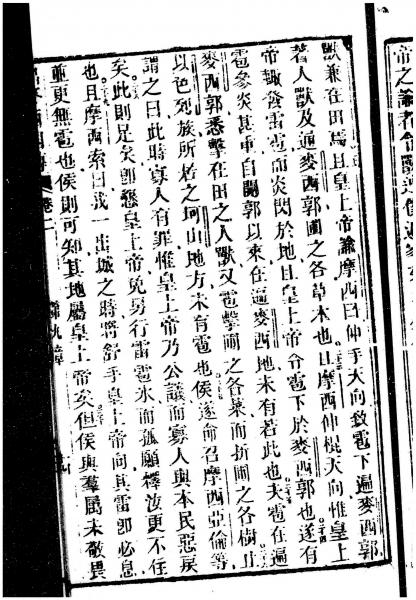 帝之諭者
獸兼在田焉且皇上帝諭摩西曰伸手天向致雹下遍麥西郭
若人獸及遍麥西郭圃之各草本也且摩西伸棍天向惟皇上
帝輙發雷雹而炎閃於地且皇上帝令雹下於麥西郭也遂有
雹參炎甚重自開郭以來在遍麥西地未有若此也夫雹在遍
麥西郭悉擊在田之人獸又雹擊圃之各菜而折圃之各樹止
以色列族所者之坷山地方未有雹也侯遂命召摩西亞倫等
謂之曰此時寡人有罪惟皇上帝乃公義而寡人與本民惡戾
矣此則足矣卽懇皇上帝免另行雷雹氷而孤願釋汝更不在
也且摩西索曰我一出城之時將舒手皇上帝向其雷卽必息
並更無雹也侯則可知其地屬皇上帝矣但侯與羣屬未敬畏
卷二